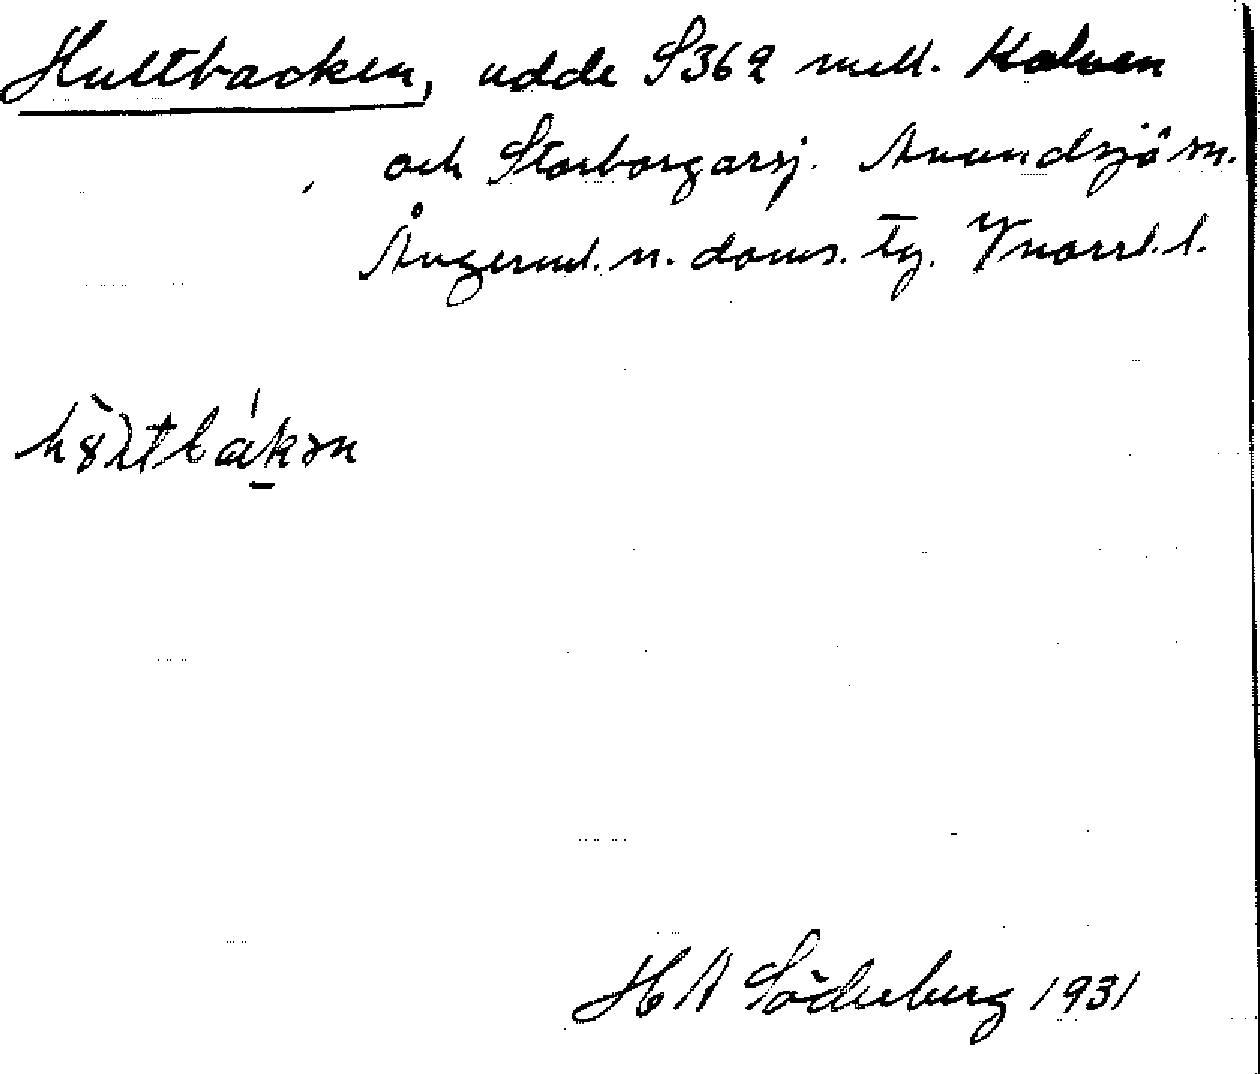 Hultbacken, udde S362 mell. Kalven
och Storborgarsj. Anundsjö sn.
Ångerml. n. doms. tg. Vnorrl. l.
H A Söderberg 1931